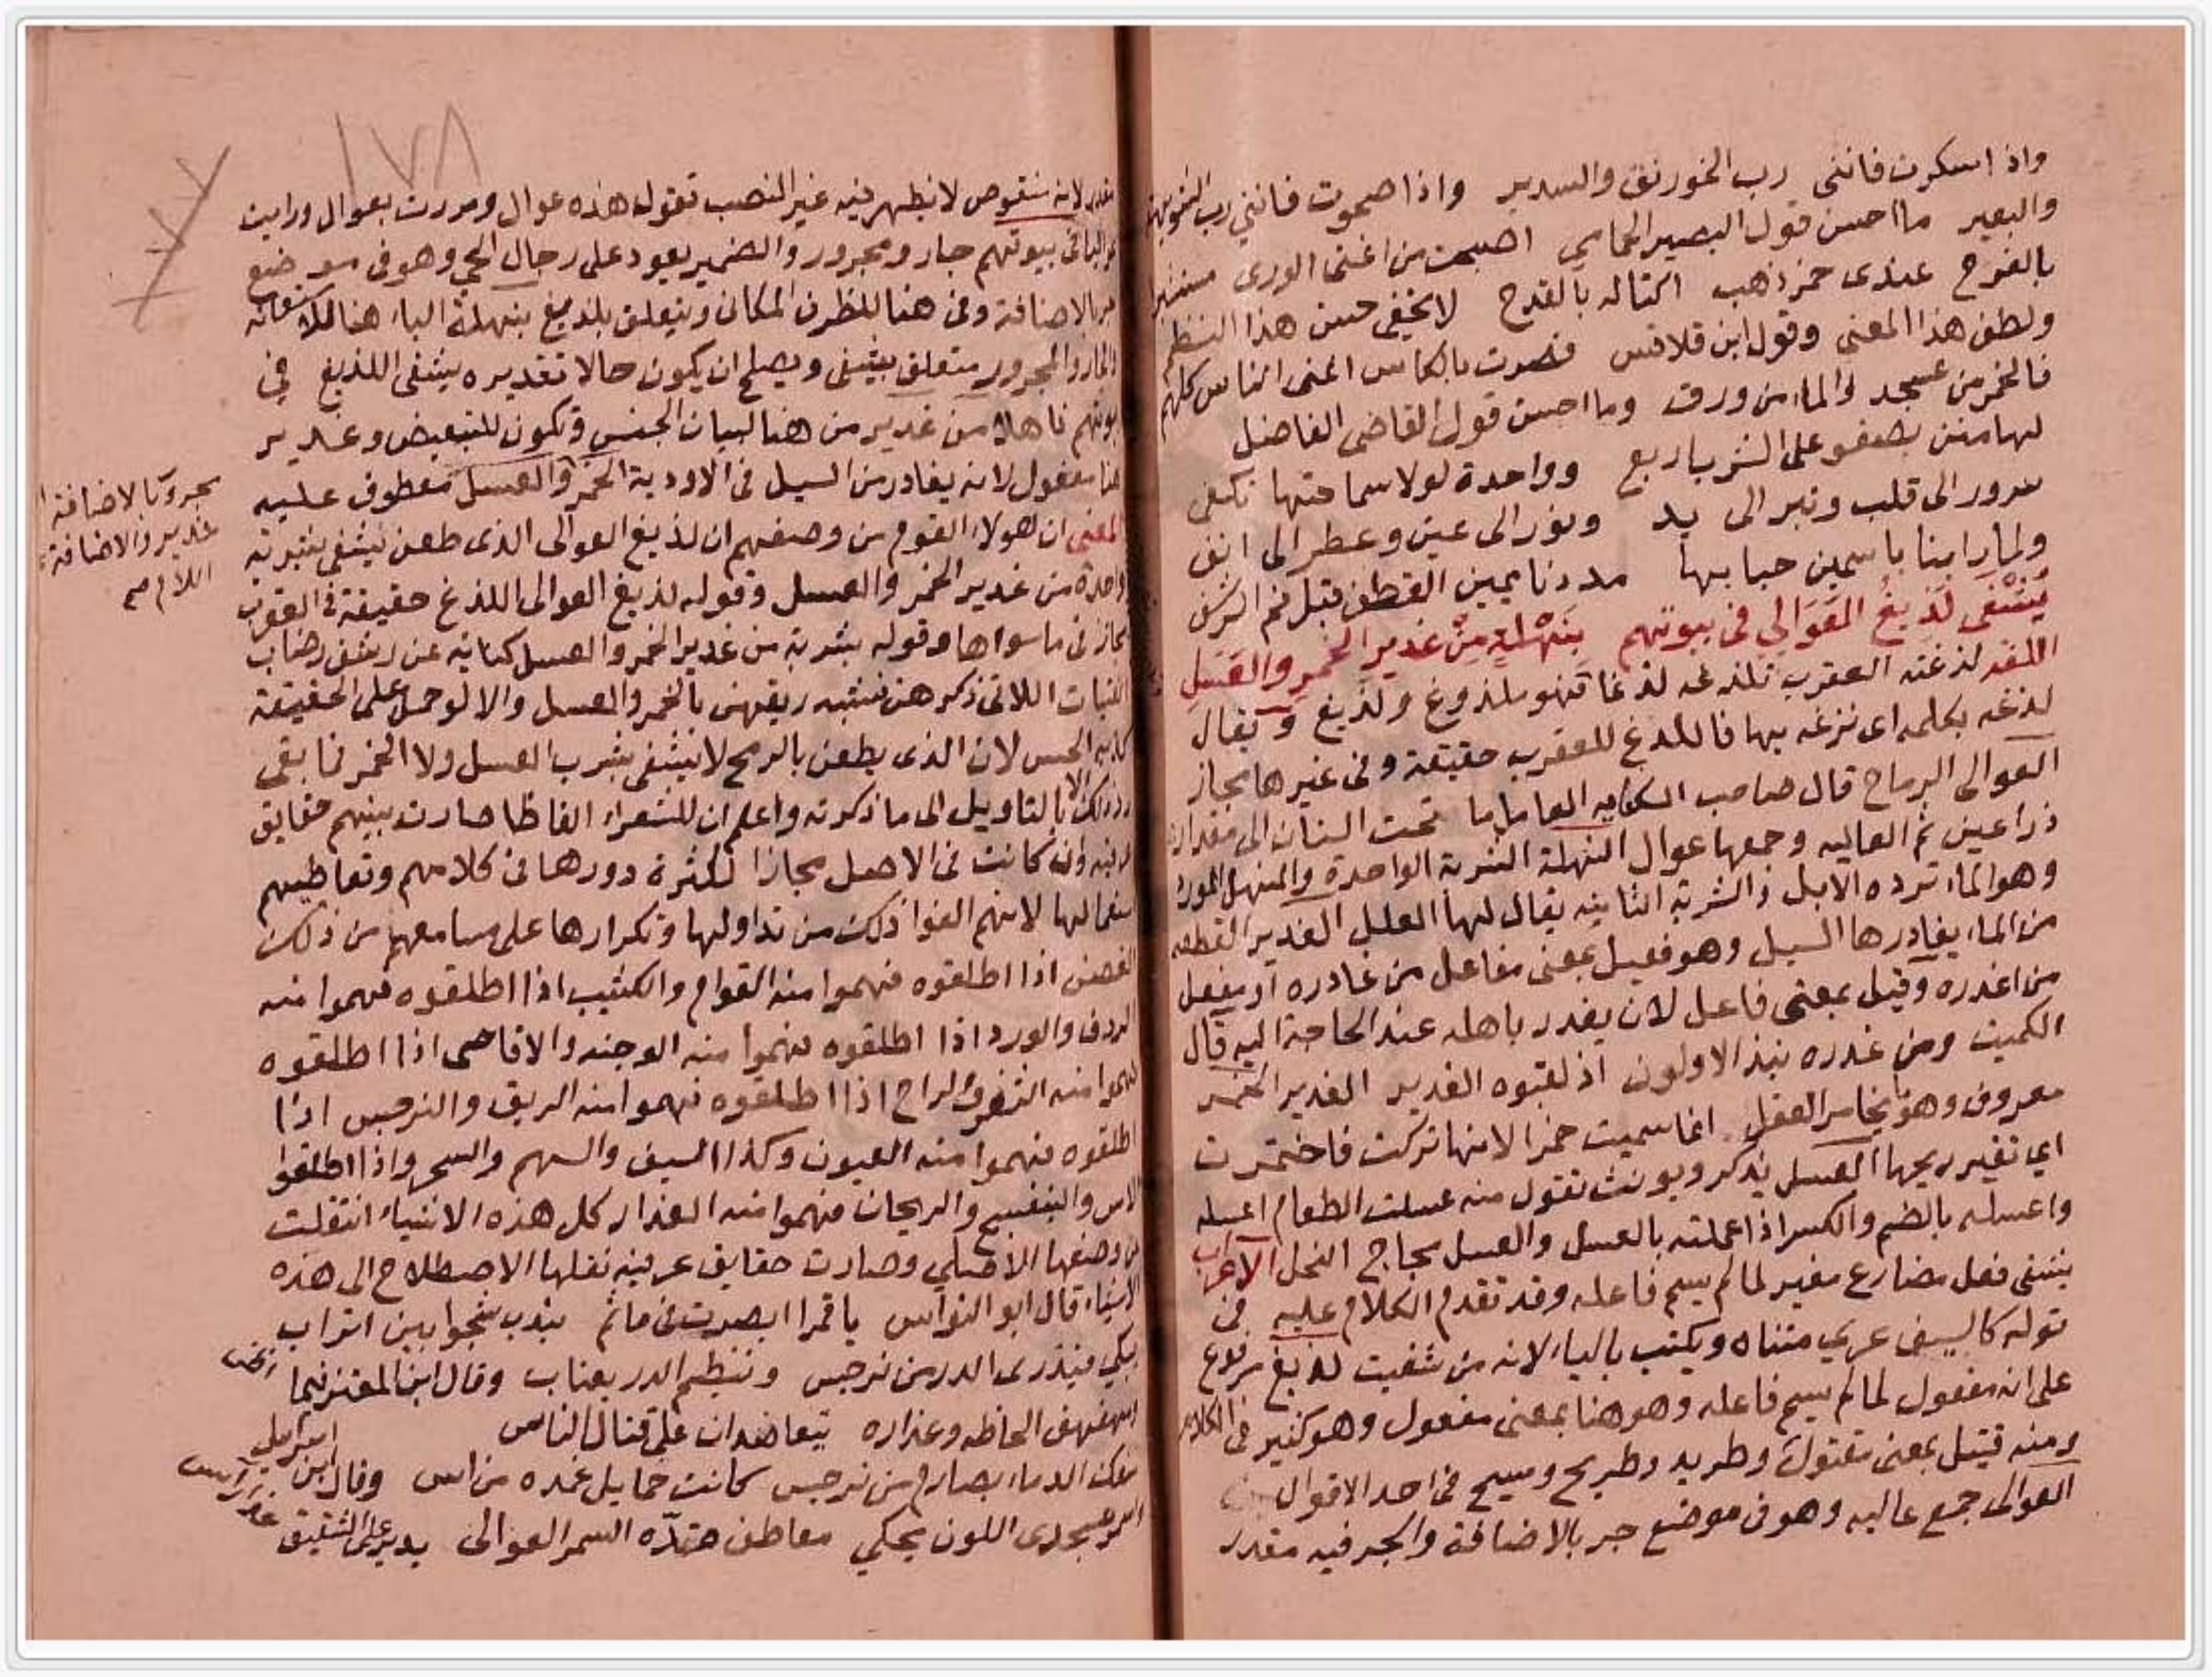 واذا سكرت فانني رب الخورنق والسدير واذا صحوت فانني رب الشويهة
والبعير ما احسن قول البصير الحمامي اصبحت من اغنى الورى مستبشرا
بالفرح عندى خمر ذهب اكتاله بالقدح لا يخفى حسن هذا النظم
ولطف هذا المعنى وقول ابن قلاقس فصرت بالكاس اغنى الناس كلهم
فالخمر من عسجد والماء من ورق وما احسن قول القاضى الفاضل
لها منن يصفو على الشرب اربع وواحدة لولا سماحتها تكفى
سرور الى قلب وتبر الى يد ونور الى عين وعطر الى انف
ولما راينا ياسمين حبابها مددنا يمين القطف قبل فم الرشف
يُشْفَى لَذِيغُ العَوَالِي فى بيوتهم بِنَهْلَةٍ مِنْ غديرِ الخمرِ والعَسَلِ
اللغه لذغته العقرب تلذغه لذغا فهو ملذوغ ولذيغ ويقال
لذغه بكلمه اى نزغه بها فاللذغ للعقرب حقيقة وفى غيرها مجاز
العوالى الرماح قال صاحب الكفايه العامل ما تحت السنان الى مقدار
ذراعين ثم العاليه وجمعها عوال النهلة الشربة الواحدة والمنهل المورد
وهو الماء ترده الابل والشربة الثانيه يقال لها العلل الغدير القطعه
من الماء يغادرها السيل وهو فعيل بمعنى مفاعل من غادره او مفعل
من اغدره وقيل بمعنى فاعل لانه يغدر باهله عند الحاجة اليه قال
الكميت ومن غدره نبذ الاولون اذ لقبوه الغدير الغدير الخمر
معروف وهو ما يخامر العقل انما سميت خمرا لانها تركت فاختمرت
اي تغير ريحها العسل يذكر ويونث تقول منه عسلت الطعام اعسله
واعسله بالضم والكسر اذا عملته بالعسل والعسل مجاج النحل الاعراب
يشفى فعل مضارع مغير لما لم يسم فاعله وقد تقدم الكلام عليه فى
قوله كالسيف عري متناه ويكتب بالياء لانه من شفيت لذيغ مرفوع
على انه مفعول لما لم يسم فاعله وهو هنا بمعنى مفعول وهو كثير فى الكلام
ومنه قتيل بمعنى مقتول وطريد وطريح ومسيح فى احد الاقوال
العوالى جمع عاليه وهو فى موضع جر بالاضافة والجر فيه مقدر
١٧٨
مقدر لانه منقوص لا يظهر فيه غير النصب تقول هذه عوال ومررت بعوال ورايت
عواليا فى بيوتهم جار ومجرور والضمير يعود على رجال الحي وهو فى موضع
جر بالاضافة وفى هنا للظرف المكانى ويتعلق بلذيغ بنهلة الباء هنا للاستعانه
والجار والمجرور متعلق بيشفى ويصلح ان يكون حالا تقديره يشفى اللذيغ في
بيوتهم ناهلا من غدير من هنا لبيان الجنس وتكون للتبعيض وغدير
هنا مفعول لانه يغادر من السيل فى الاودية الخمر والعسل معطوف عليه
المعنى ان هولاء القوم من وصفهم ان لذيغ العوالى الذى طعن يشفى بشربة
واحدة من غدير الخمر والعسل وقوله لذيغ العوالى اللذغ حقيقة فى العقرب
مجاز فى ما سواها وقوله بشربة من غدير الخمر والعسل كناية عن رشف رضاب
الفتيات اللاتى ذكرهن فشبه ريقهن بالخمر والعسل والا لو حمل على الحقيقة
كذبه الحس لان الذى يطعن بالرمح لا يشفى بشرب العسل ولا الخمر فما بقى
ردذلك الا بالتاويل الى ما ذكرته واعلم ان للشعراء الفاظا صارت بينهم حقايق
عرفيه وان كانت فى الاصل مجازا لكثرة دورها فى كلامهم وتعاطيهم
استعمالها لانهم الفوا ذلك من تداولها وتكرارها على مسامعهم من ذلك
الغصن اذا اطلقوه فهموا منه القوام والكثيب اذا اطلقوه فهموا منه
الردف والورد اذا اطلقوه فهموا منه الوجنه والاقاحى اذا اطلقوه
فهموا منه الثغر والراح اذا اطلقوه فهموا منه الريق والنرجس اذا
اطلقوه فهموا منه العيون وكذا السيف والسهم والسحر واذا اطلقوا
الاس والبنفسج والريحان فهموا منه العذار كل هذه الاشياء انتقلت
عن وضعها الاصلي وصارت حقايق عرفيه نقلها الاصطلاح الى هذه
الاشياء قال ابو النواس يا قمرا ابصرت فى ماتم يندب شجوا بين اتراب
يبكي فيذرى الدر من نرجس ويلطم الورد بعناب وقال ابن المعتز فيما
ومهفهف الحاظه وعذاره يتعاضدان على قتال الناس
سفك الدماء بصارم من نرجس كانت حمايل غمده من اس وقال ابن اسرائيل
اسمر عسجدى اللون يحكي معاطف قده السمر العوالى يدير على الشقيق
مجروربالاضافة
غدير والاضافة
اللام صح